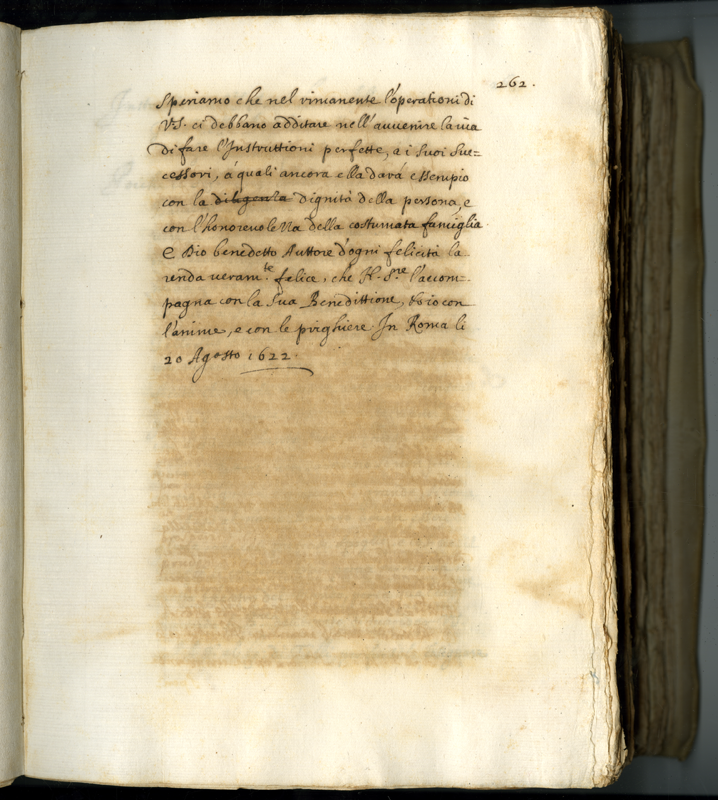 262.
Speriamo che nel rimanente l'operationi di
V.S. ci debbano additare nell'auuenire la uia
di fare l'Instruttioni perfette, a i suoi suc=
cessori, à quali ancora ella darà essempio
con la diligenza dignità della persona, e
con l'honoreuolezza della costumata famiglia.
E Dio benedetto Auttore d'ogni felicità la
renda ueram.te felice, che N. S.re l'accom-
pagna con la sua Benedittione, et io con
l'animo, e con le preghiere. In Roma li
20 Agosto 1622.